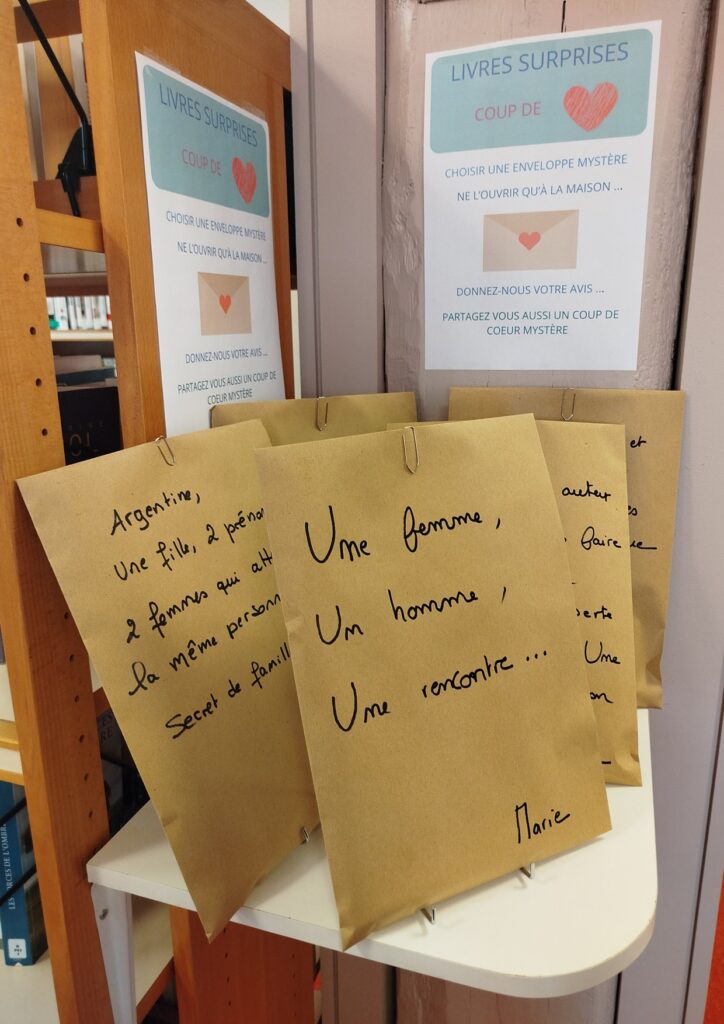 LIVRES SURPRISES
COUP DE
CHOISIR UNE ENVELOPPE MYSTÈRE
NE L'OUVRIR QU'À LA MAISON ...
DONNEZ-NOUS VOTRE AVIS ...
PARTAGEZ VOUS AUSSI UN COUP DE
COEUR MYSTÈRE
LIVRES SURPRISES
COUP DE
CHOISIR UNE ENVELOPPE MYSTÈRE
NE L'OUVRIR QU'À LA MAISON ...
DONNEZ-NOUS VOTRE AVIS ...
PARTAGEZ VOUS AUSSI UN COUP DE
COEUR MYSTÈRE
Argentine,
Une fille, 2
2 femmes qui
la même
Secret de
Une femme,
Un homme,
Une rencontre ...
Marie
auteur
faire
Une
et